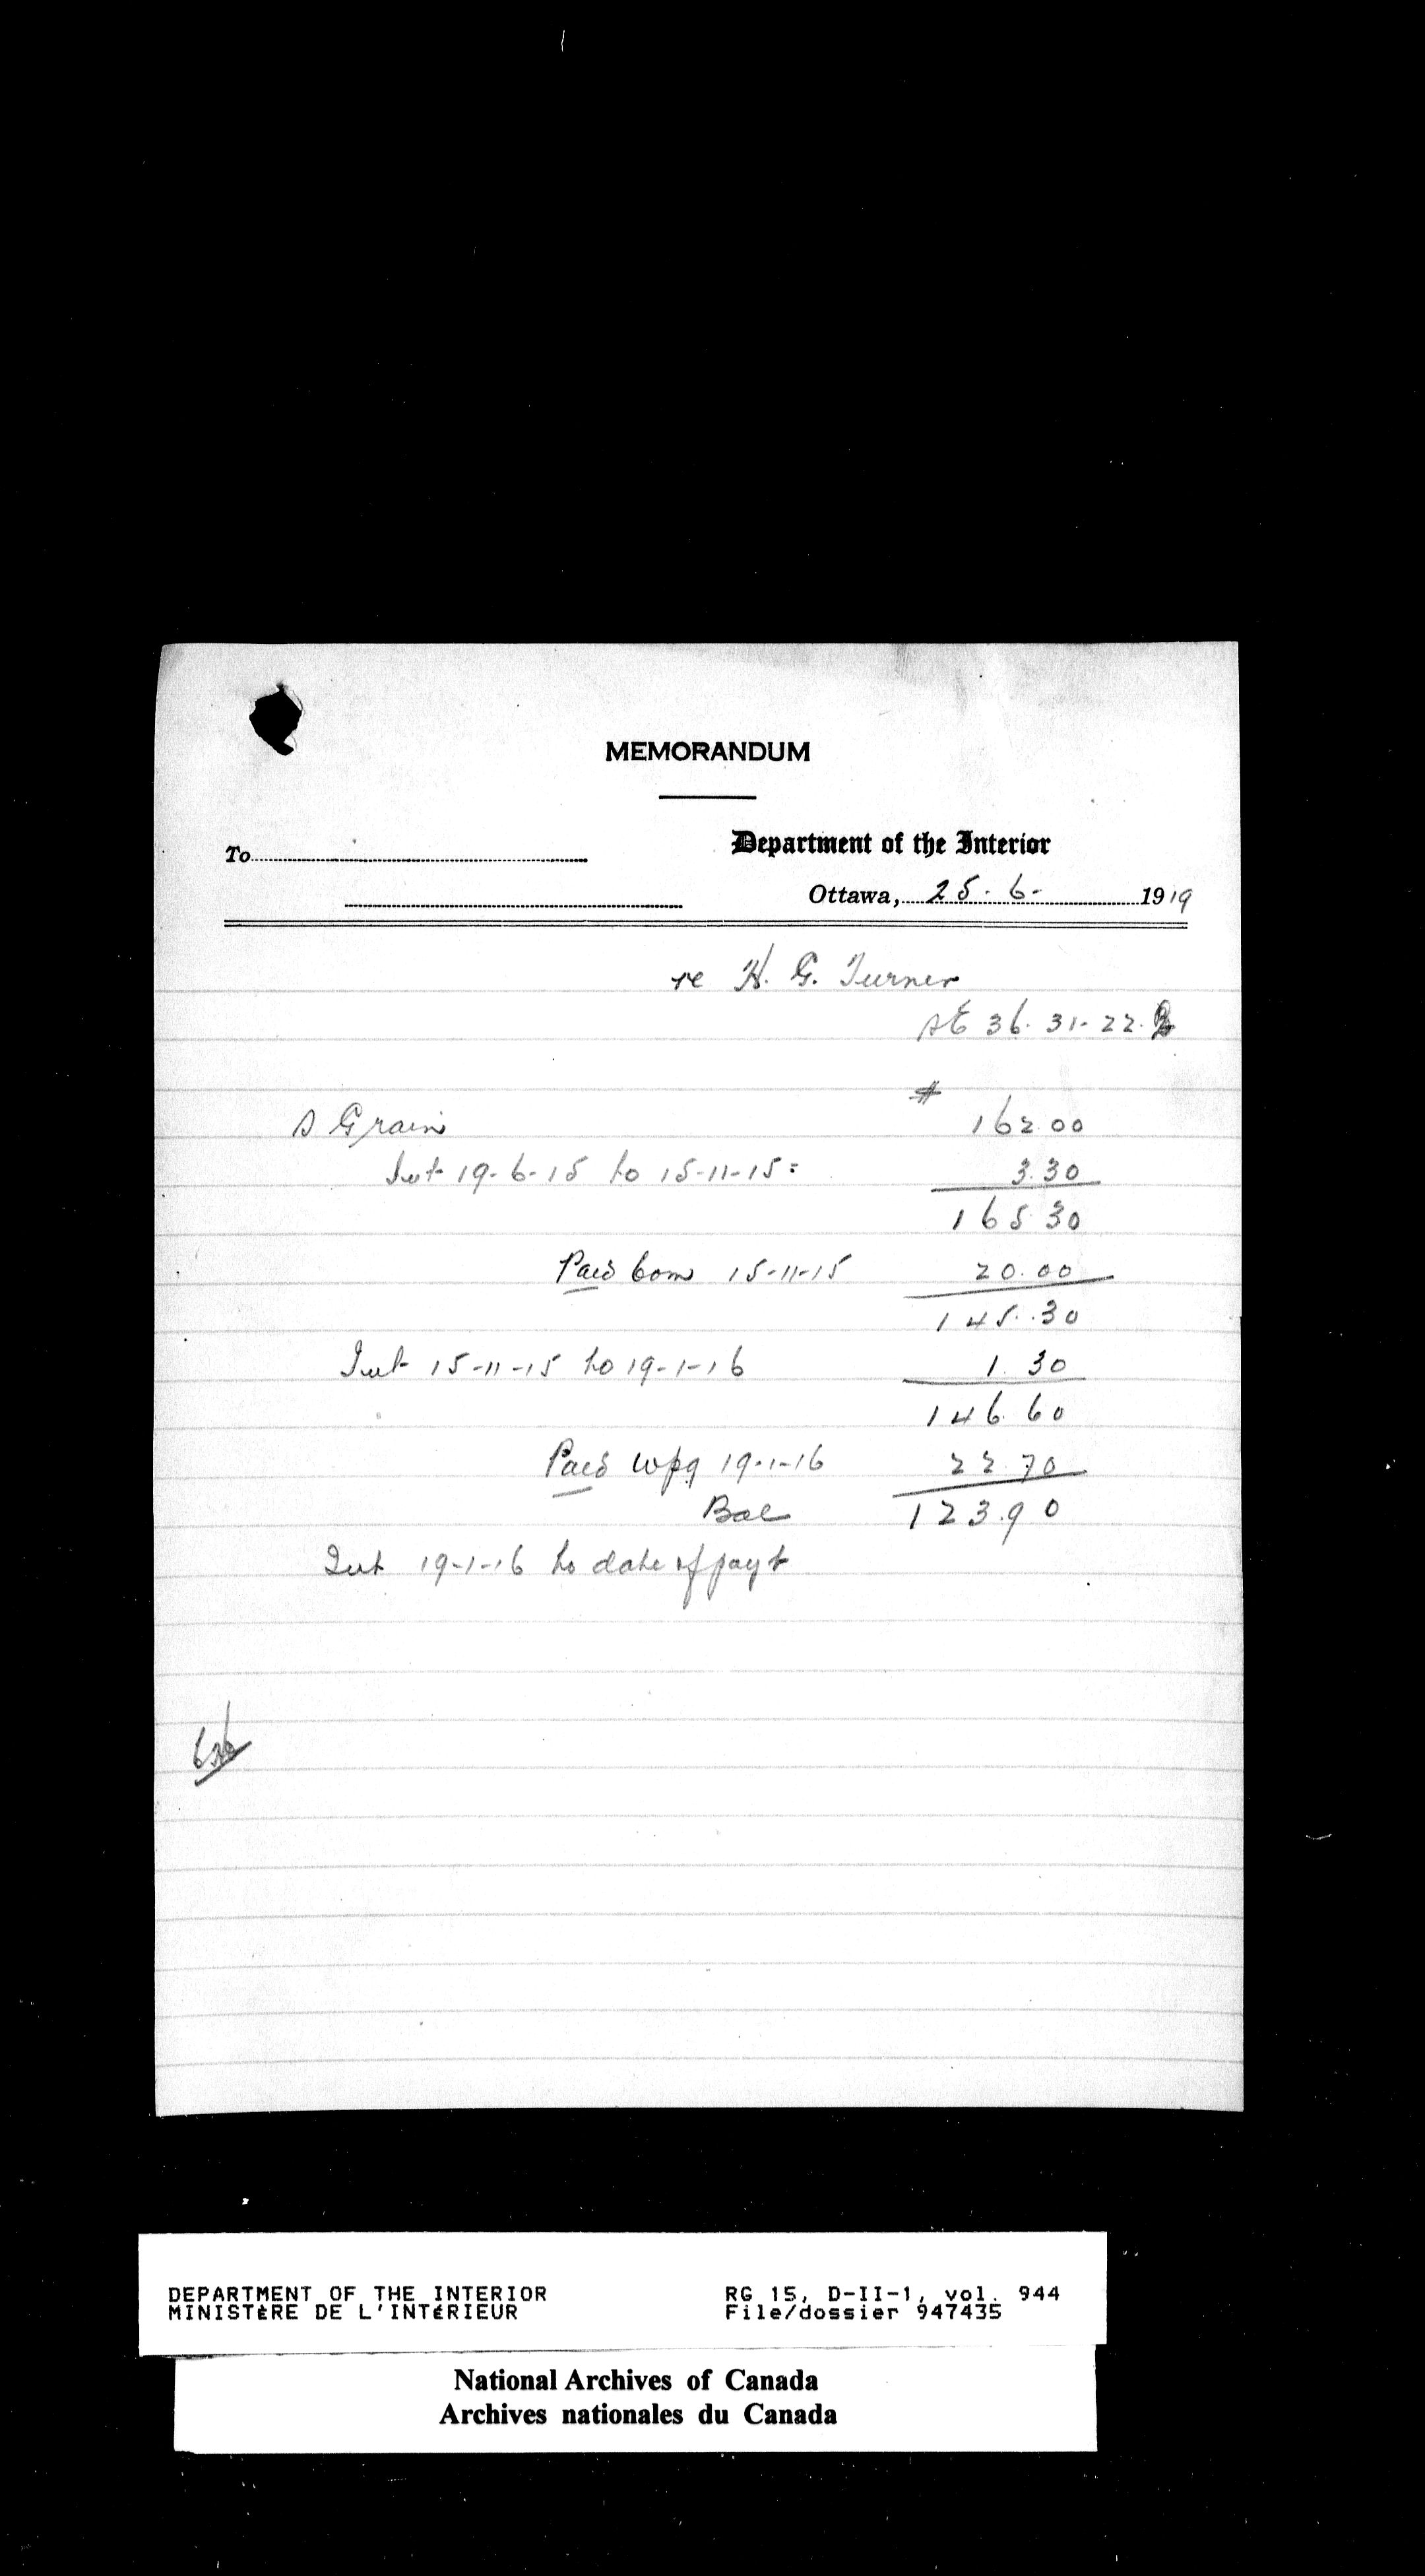 MEMORANDUM
To
Department of the Interior
Ottawa, 25-6- 1919
re H. G. Turner
SE 36. 31-22.
$
S Grain 162.00
Int 19-6-15 to 15-11-15= 3.30
165 30
Paid Com 15-11-15 20.00
145.30
Int 15-11-15 to 19-1-16 1.30
146.60
Paid Wpg 19-1-16 22.70
Bal 123.90
Int 19-1-16 to date of payt
DEPARTMENT OF THE INTERIOR RG 15, D-II-1, vol. 944
MINISTÈRE DE L'INTÉRIEUR File/dossier 947435
National Archives of Canada
Archives nationales du Canada